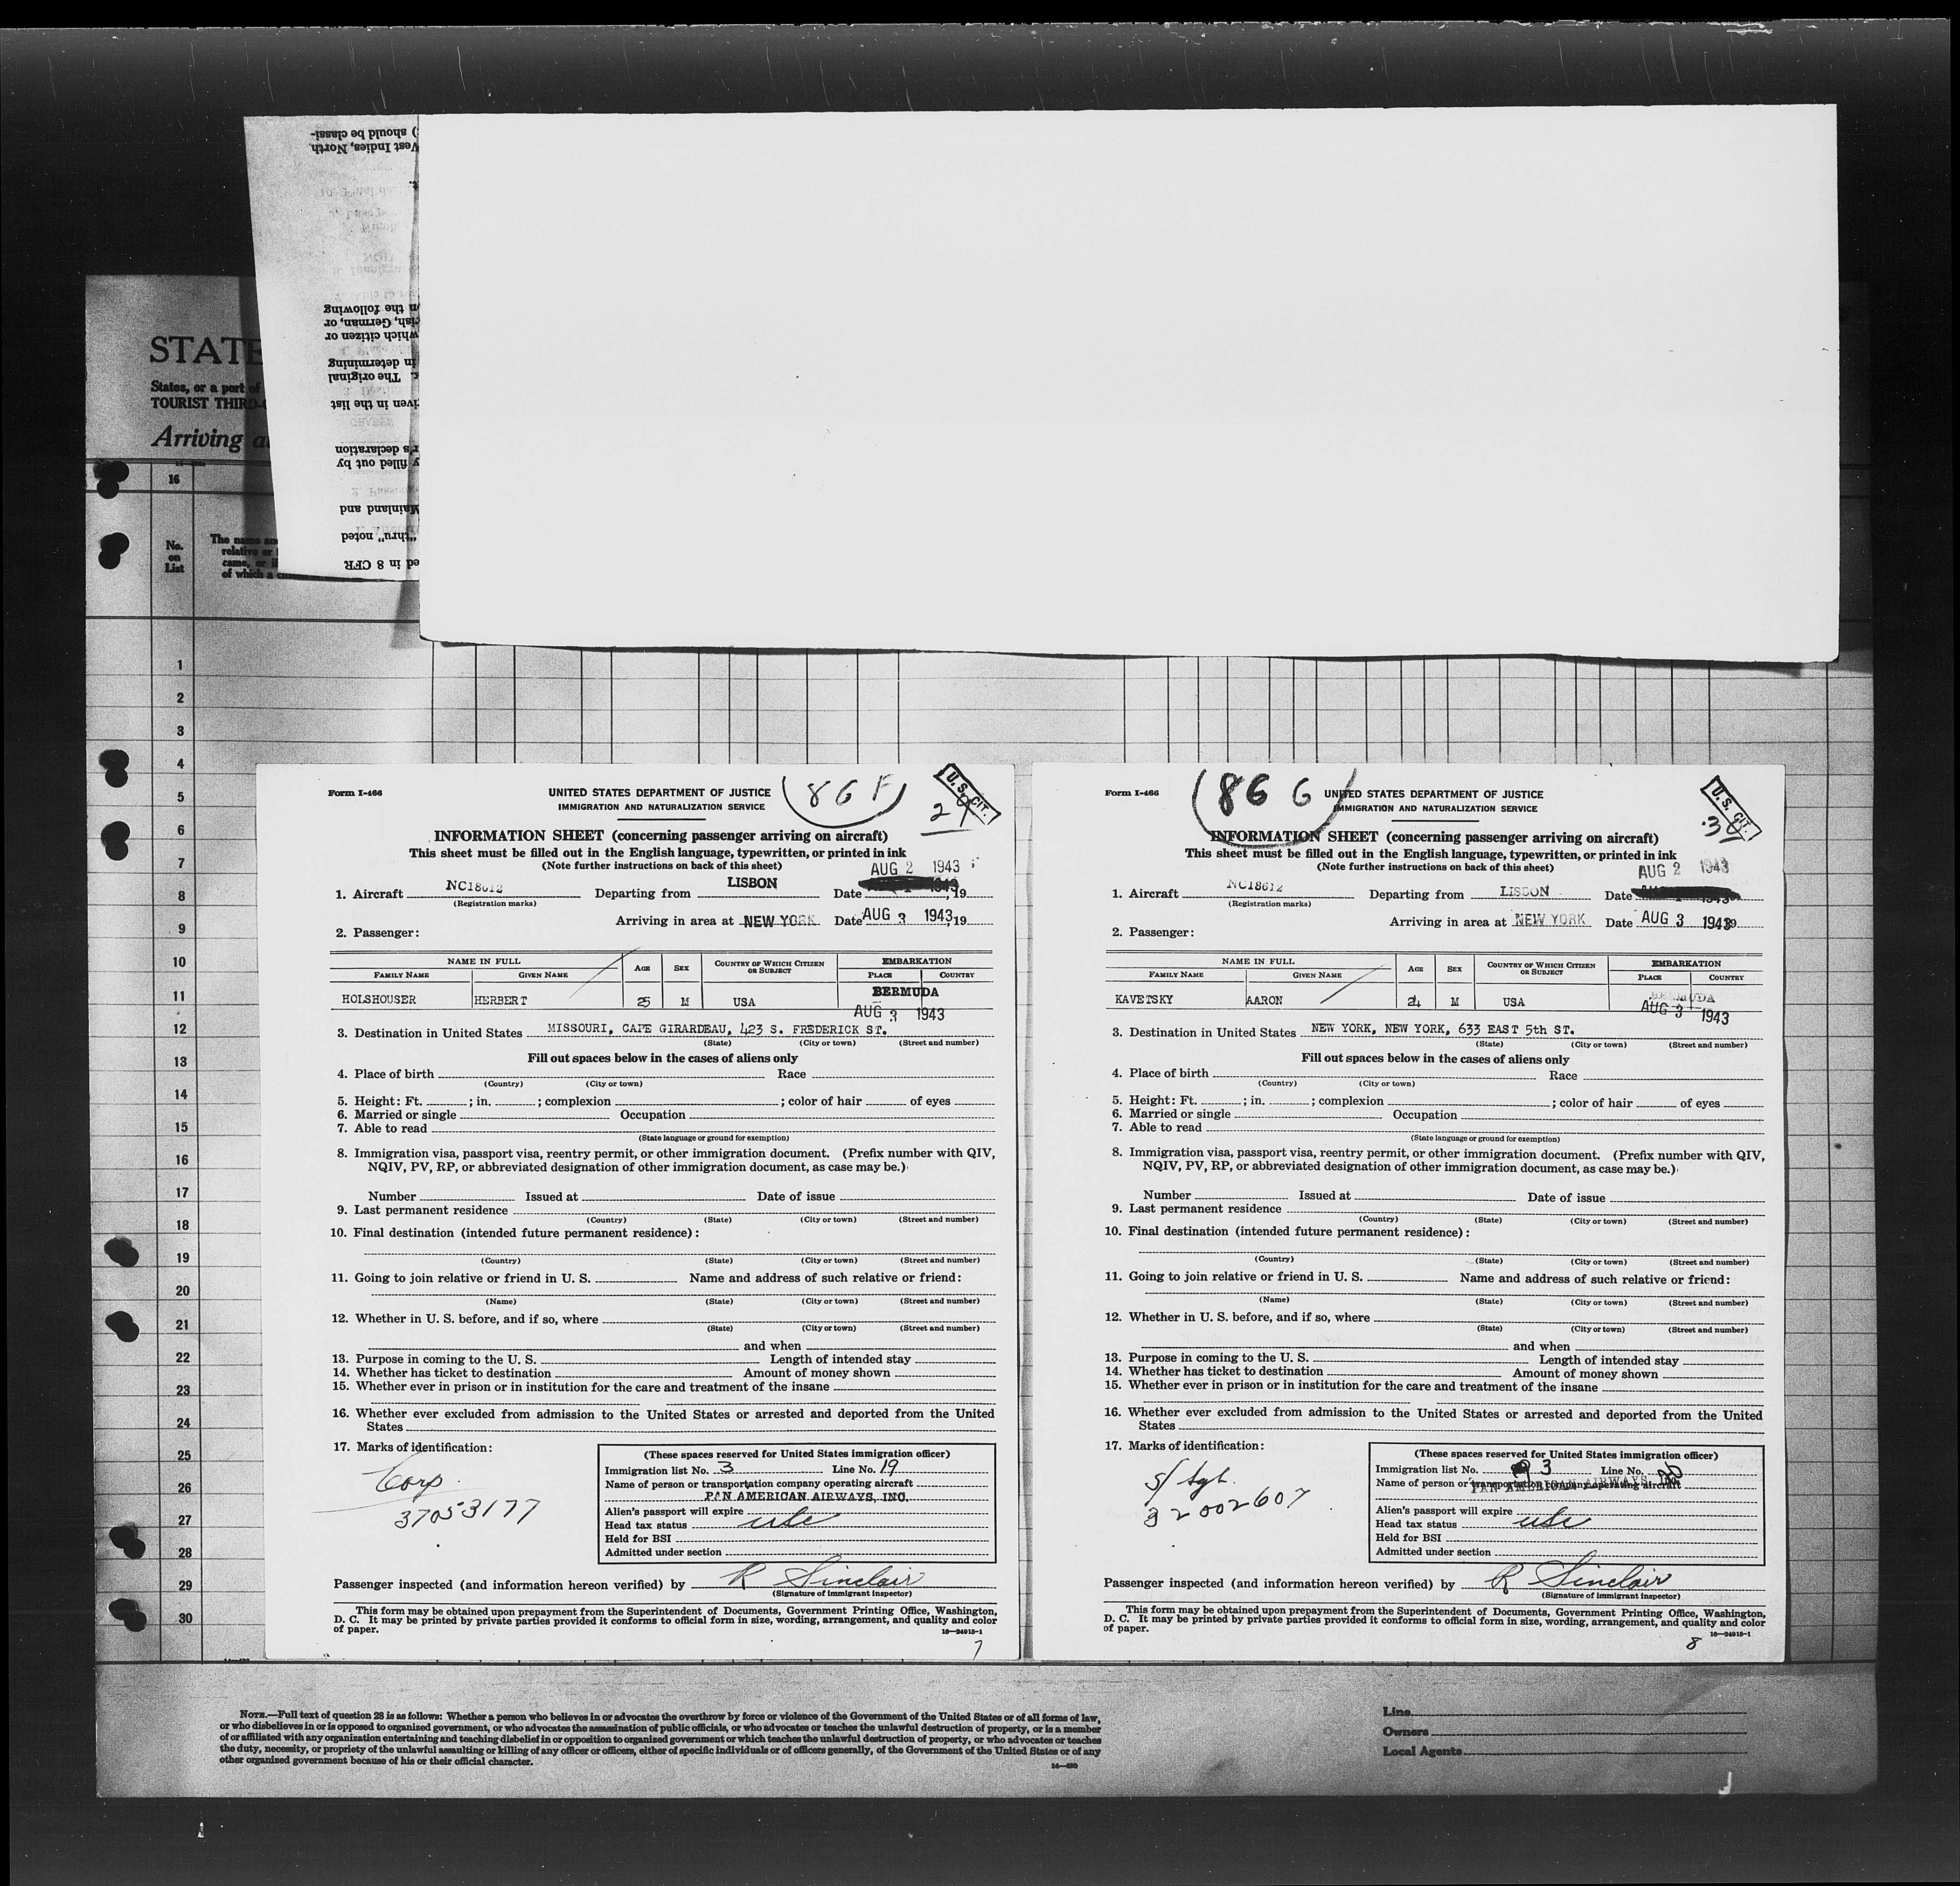 STATE
States, or a part of
TOURIST THIRD-
Arriving
16
No. on List
The name and
relative or
came, or if
of which a
) should be classi-
Vest Indies, North
n the following
ish, German, or
which citizen or
in determining
The original
iven in the list
r's declaration
y filled out by
Mainland and
"thru" noted
ed in 8 CFR
1
2
3
4
5
6
7
8
9
10
11
12
13
14
15
16
17
18
19
20
21
22
23
24
25
26
27
28
29
30
Form I-466
UNITED STATES DEPARTMENT OF JUSTICE
IMMIGRATION AND NATURALIZATION SERVICE
(86 F)
U. S. CIT.
29
INFORMATION SHEET (concerning passenger arriving on aircraft)
This sheet must be filled out in the English language, typewritten, or printed in ink
(Note further instructions on back of this sheet)
AUG 2 1943
1. Aircraft NC18612 Departing from LISBON Date , 19
(Registration marks)
Arriving in area at NEW YORK Date AUG 3 1943, 19
2. Passenger:
NAME IN FULL AGE SEX COUNTRY OF WHICH CITIZEN OR SUBJECT EMBARKATION
FAMILY NAME GIVEN NAME PLACE COUNTRY
HOLSHOUSER HERBERT 25 M USA BERMUDA
AUG 3 1943
3. Destination in United States MISSOURI, CAPE GIRARDEAU, 423 S. FREDERICK ST.
(State) (City or town) (Street and number)
Fill out spaces below in the cases of aliens only
4. Place of birth Race
(Country) (City or town)
5. Height: Ft. ; in. ; complexion ; color of hair of eyes
6. Married or single Occupation
7. Able to read
(State language or ground for exemption)
8. Immigration visa, passport visa, reentry permit, or other immigration document. (Prefix number with QIV,
NQIV, PV, RP, or abbreviated designation of other immigration document, as case may be.)
Number Issued at Date of issue
9. Last permanent residence
(Country) (State) (City or town) (Street and number)
10. Final destination (intended future permanent residence):
(Country) (State) (City or town) (Street and number)
11. Going to join relative or friend in U. S. Name and address of such relative or friend:
(Name) (State) (City or town) (Street and number)
12. Whether in U. S. before, and if so, where
(State) (City or town) (Street and number)
and when
13. Purpose in coming to the U. S. Length of intended stay
14. Whether has ticket to destination Amount of money shown
15. Whether ever in prison or in institution for the care and treatment of the insane
16. Whether ever excluded from admission to the United States or arrested and deported from the United
States
17. Marks of identification:
Corp.
37053177
(These spaces reserved for United States immigration officer)
Immigration list No. 3 Line No. 19
Name of person or transportation company operating aircraft
PAN AMERICAN AIRWAYS, INC.
Alien's passport will expire
Head tax status usc
Held for BSI
Admitted under section
Passenger inspected (and information hereon verified) by R Sinclair
(Signature of immigrant inspector)
This form may be obtained upon prepayment from the Superintendent of Documents, Government Printing Office, Washington,
D. C. It may be printed by private parties provided it conforms to official form in size, wording, arrangement, and quality and color
of paper.
16—24915-1
7
Form I-466
(86 G)
UNITED STATES DEPARTMENT OF JUSTICE
IMMIGRATION AND NATURALIZATION SERVICE
U. S. CIT.
30
INFORMATION SHEET (concerning passenger arriving on aircraft)
This sheet must be filled out in the English language, typewritten, or printed in ink
(Note further instructions on back of this sheet)
AUG 2 1943
1. Aircraft NC18612 Departing from LISBON Date
(Registration marks)
Arriving in area at NEW YORK Date AUG 3 1943
2. Passenger:
NAME IN FULL AGE SEX COUNTRY OF WHICH CITIZEN OR SUBJECT EMBARKATION
FAMILY NAME GIVEN NAME PLACE COUNTRY
KAVETSKY AARON 24 M USA BERMUDA
AUG 3 1943
3. Destination in United States NEW YORK, NEW YORK, 633 EAST 5th ST.
(State) (City or town) (Street and number)
Fill out spaces below in the cases of aliens only
4. Place of birth Race
(Country) (City or town)
5. Height: Ft. ; in. ; complexion ; color of hair of eyes
6. Married or single Occupation
7. Able to read
(State language or ground for exemption)
8. Immigration visa, passport visa, reentry permit, or other immigration document. (Prefix number with QIV,
NQIV, PV, RP, or abbreviated designation of other immigration document, as case may be.)
Number Issued at Date of issue
9. Last permanent residence
(Country) (State) (City or town) (Street and number)
10. Final destination (intended future permanent residence):
(Country) (State) (City or town) (Street and number)
11. Going to join relative or friend in U. S. Name and address of such relative or friend:
(Name) (State) (City or town) (Street and number)
12. Whether in U. S. before, and if so, where
(State) (City or town) (Street and number)
and when
13. Purpose in coming to the U. S. Length of intended stay
14. Whether has ticket to destination Amount of money shown
15. Whether ever in prison or in institution for the care and treatment of the insane
16. Whether ever excluded from admission to the United States or arrested and deported from the United
States
17. Marks of identification:
S/Sgt.
32002607
(These spaces reserved for United States immigration officer)
Immigration list No. 3 Line No. 20
Name of person or transportation company operating aircraft
PAN AMERICAN AIRWAYS, INC.
Alien's passport will expire
Head tax status usc
Held for BSI
Admitted under section
Passenger inspected (and information hereon verified) by R Sinclair
(Signature of immigrant inspector)
This form may be obtained upon prepayment from the Superintendent of Documents, Government Printing Office, Washington,
D. C. It may be printed by private parties provided it conforms to official form in size, wording, arrangement, and quality and color
of paper.
16—24915-1
8
NOTE.—Full text of question 28 is as follows: Whether a person who believes in or advocates the overthrow by force or violence of the Government of the United States or of all forms of law,
or who disbelieves in or is opposed to organized government, or who advocates the assassination of public officials, or who advocates or teaches the unlawful destruction of property, or is a member
of or affiliated with any organization entertaining and teaching disbelief in or opposition to organized government or which teaches the unlawful destruction of property, or who advocates or teaches
the duty, necessity, or propriety of the unlawful assaulting or killing of any officer or officers, either of specific individuals or of officers generally, of the Government of the United States or of any
other organized government because of his or their official character.
14—430
Line
Owners
Local Agents